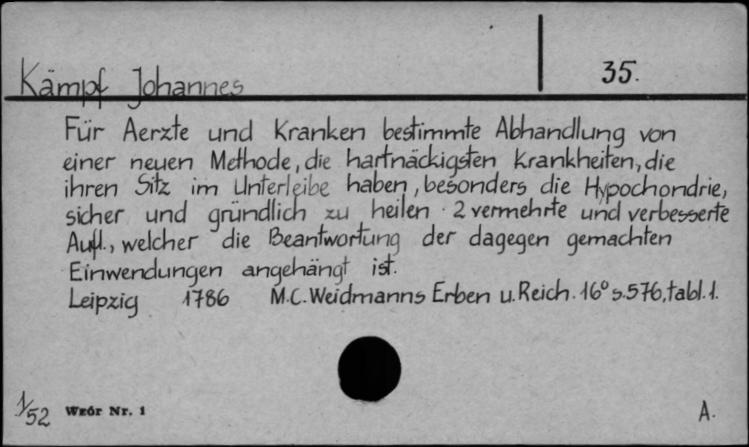 Kämpf Johannes
35.
Für Aerzte und Kranken bestimmte Abhandlung von
einer neuen Methode, die hartnäckigsten Krankheiten, die
ihren Sitz im Unterleibe haben, besonders die Hypochondrie,
sicher und gründlich zu heilen. 2 vermehrte und verbesserte
Aufl., welcher die Beantwortung der dagegen gemachten
Einwendungen angehängt ist.
Leipzig 1786 M.C. Weidmanns Erben u. Reich. 16° s. 576, tabl. 1.
1/52 Wzór Nr. 1
A.